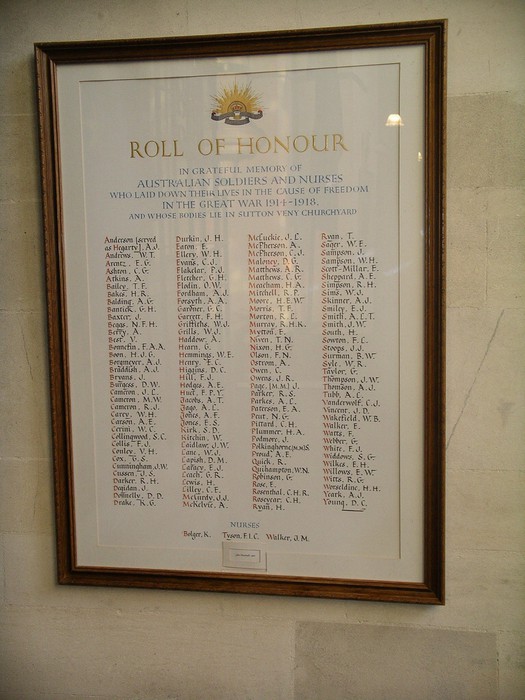 ROLL OF HONOUR
IN GRATEFUL MEMORY OF
AUSTRALIAN SOLDIERS AND NURSES
WHO LAID DOWN THEIR LIVES IN THE CAUSE OF FREEDOM
IN THE GREAT WAR 1914-1918,
AND WHOSE BODIES LIE IN SUTTON VENY CHURCHYARD
Anderson [served
as Hegarty] A.J.
Andrews, W.T.
Arentz, E.G.
Ashton, C.G.
Atkins, A.
Bailey, T.E.
Bakes, H.R.
Balding, A.G.
Bantick, G.H.
Baxter, J.
Beggs, N.F.H.
Berry, A.
Best, V.
Bonnefin, F.A.A.
Boon, H.J.G.
Bovemyer, A.J.
Braddish, A.J.
Bryans, J.
Burgess, D.W.
Cameron, J.L.
Cameron, M.W.
Cameron, R.J.
Carey, W.H.
Carson, A.E.
Cerini, W.C.
Collingwood, S.C.
Collis, E.J.
Conley, V.H.
Cox, G.S.
Cunningham, J.W.
Cussen, J.S.
Darker, R.H.
Degidan, J.
Donnelly, D.D.
Drake, R.G.
Durkin, J.H.
Eaton, E.
Ellery, W.H.
Evans, C.J.
Flakelar, P.J.
Fletcher, G.H.
Flodin, O.W.
Fordham, A.J.
Forsyth, A.A.
Gardner, G.C.
Garrett, F.H.
Griffiths, W.J.
Grills, W.J.
Haddow, A.
Hearn, G.
Hemmings, W.E.
Henry, E.C.
Higgins, D.C.
Hill, F.J.
Hodges, A.E.
Huet, F.P.Y.
Jacobs, A.T.
Jago, A.L.
Jones, A.F.
Jones, E.S.
Kirk, S.D.
Kitchin, W.
Laidlaw, J.W.
Lane, W.J.
Lapish, D.M.
Larney, E.J.
Leach, G.R.
Lewis, H.
Lilley, C.E.
McCurdy, J.J.
McKelvie, A.
McLuckie, J.L.
McPherson, A.
McPherson, C.J.
Maloney, D.G.
Matthews, A.R.
Matthews, C.G.
Meacham, H.A.
Mitchell, R.P.
Moore, H.E.W.
Morris, T.E.
Morton, R.L.
Murray, R.H.K.
Mytton, E.
Niven, T.N.
Nixon, H.G.
Olson, F.N.
Ostrom, A.
Owen, C.
Owens, J.R.
Page, [M.M.] J.
Parker, R.S.
Parkes, A.L.
Paterson, E.A.
Peut, N.G.
Pittard, C.H.
Plummer, H.A.
Podmore, J.
Polkinghorne, H.N.S.
Proud, A.E.
Quick, R.
Quihampton, W.N.
Robinson, G.
Rose, E.
Rosenthal, C.H.R.
Rosevear, C.H.
Ryan, H.
Ryan, T.
Sager, W.E.
Sampson, J.
Sampson, W.H.
Scott-Millar, E.
Sheppard, A.E.
Simpson, R.H.
Sims, W.J.
Skinner, A.J.
Smiley, E.J.
Smith, A.L.T.
Smith, J.W.
South, H.
Sowton, F.L.
Stoops, J.J.
Surman, B.W.
Syle, W.R.
Taylor, G.
Thompson, J.W.
Thomson, A.J.
Tubb, A.L.
Vanderwolf, C.J.
Vincent, J.D.
Wakefield, W.B.
Walker, E.
Watts, F.
Webber, G.
White, F.J.
Widdows, S.G.
Wilkes, E.H.
Willows, E.W.
Witts, R.G.
Worseldine, H.H.
Yeark, A.J.
Young, D.C.
NURSES
Bolger, K. Tyson, F.I.C. Walker, J.M.